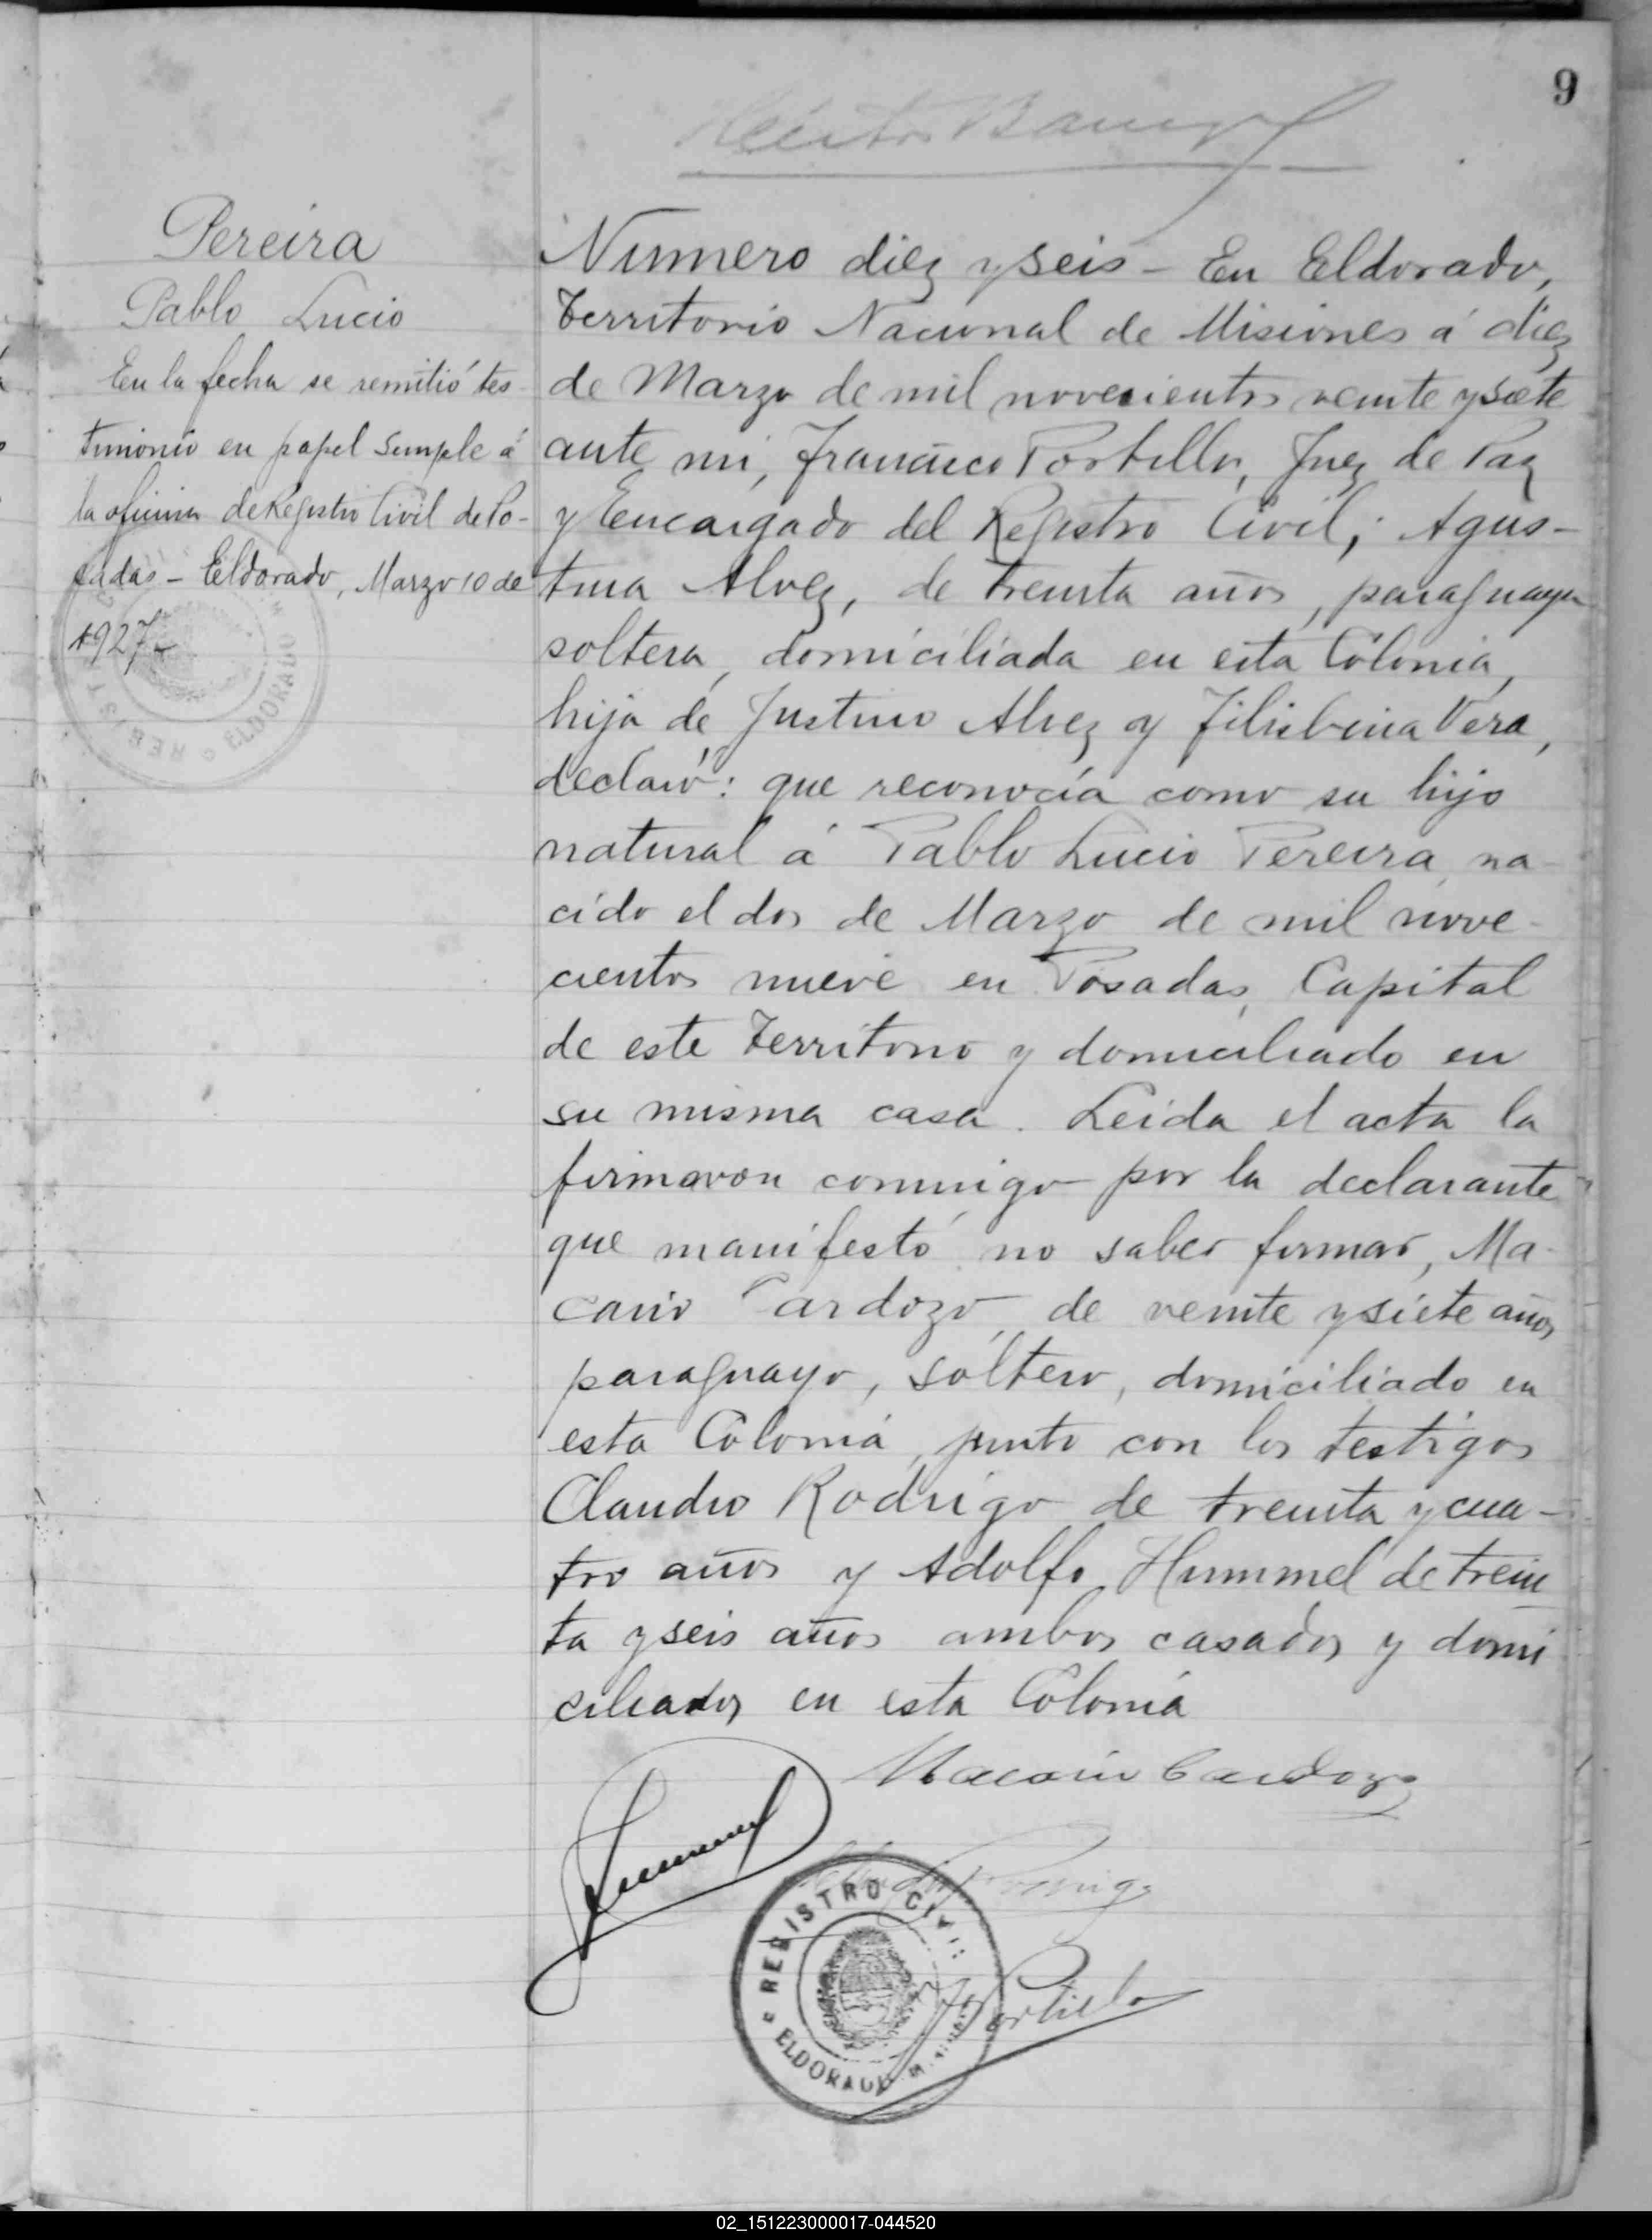 9
Pereira
Pablo Lucio
En la fecha se remitió tes-
timonio en papel simple á
la oficina de Registro Civil de Po-
sadas - Eldorado, Marzo 10 de
1927
REGISTRO
ELDORADO
Numero diez y seis - En Eldorado,
Territorio Nacional de Misiones á diez
de Marzo de mil novecientos veinte y siete
ante mi, Francisco Portillo, Juez de Paz
y Encargado del Registro Civil; Agus-
tina Alvez, de treinta años, paraguaya
soltera, domiciliada en esta Colonia,
hija de Justino Alvez y Vera,
declaró: que reconocía como su hijo
natural á Pablo Lucio Pereira, na-
cido el dos de Marzo de mil nove-
cientos nueve en Posadas, Capital
de este Territorio y domiciliado en
su misma casa. Leida el acta la
firmaron conmigo por la declarante
que manifestó no saber firmar, Ma-
cario Cardozo, de veinte y siete años,
paraguayo, soltero, domiciliado en
esta Colonia, junto con los testigos
Claudio Rodrigo de treinta y cua-
tro años y Adolfo Hummel de trein
ta y seis años ambos casados y domi
ciliados en esta Colonia
Macario Cardozo
Hummel
REGISTRO CIVIL
ELDORADO
Portillo
02_151223000017-044520